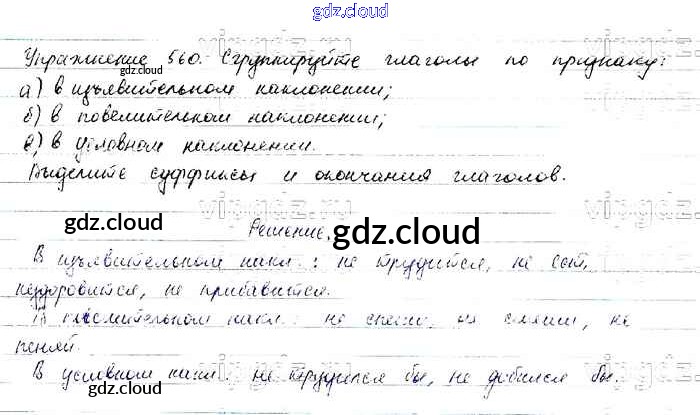 gdz.cloud
Упражнение 560. Сгруппируйте глаголы по признаку:
gdz.cloud
а) в изъявительном наклонении;
б) в повелительном наклонении;
в) в условном наклонении.
gdz.cloud
Выделите суффиксы и окончания глаголов.
gdz.cloud
Решение.
gdz.cloud
В изъявительном накл.: не трудится, не
нездоровится, не прибавится.
В накл.: не спеши, не смеши, не
пеняй.
В условном накл.: не трудился бы, не добился бы.
gdz.cloud
gdz.cloud